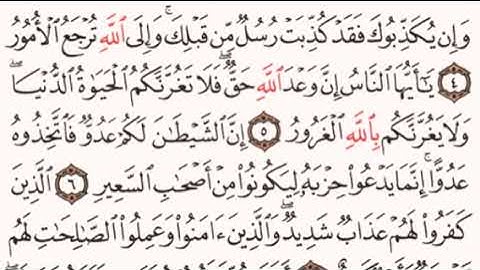 وَإِن يُكَذِّبُوكَ فَقَدْ كُذِّبَتْ رُسُلٌ مِّن قَبْلِكَ ۚ وَإِلَى ٱللَّهِ تُرْجَعُ ٱلْأُمُورُ
٤ يَـٰٓأَيُّهَا ٱلنَّاسُ إِنَّ وَعْدَ ٱللَّهِ حَقٌّ ۖ فَلَا تَغُرَّنَّكُمُ ٱلْحَيَوٰةُ ٱلدُّنْيَا ۖ
وَلَا يَغُرَّنَّكُم بِٱللَّهِ ٱلْغَرُورُ ٥ إِنَّ ٱلشَّيْطَـٰنَ لَكُمْ عَدُوٌّ فَٱتَّخِذُوهُ
عَدُوًّا ۚ إِنَّمَا يَدْعُوا۟ حِزْبَهُۥ لِيَكُونُوا۟ مِنْ أَصْحَـٰبِ ٱلسَّعِيرِ ٦ ٱلَّذِينَ
كَفَرُوا۟ لَهُمْ عَذَابٌ شَدِيدٌ ۖ وَٱلَّذِينَ ءَامَنُوا۟ وَعَمِلُوا۟ ٱلصَّـٰلِحَـٰتِ لَهُم